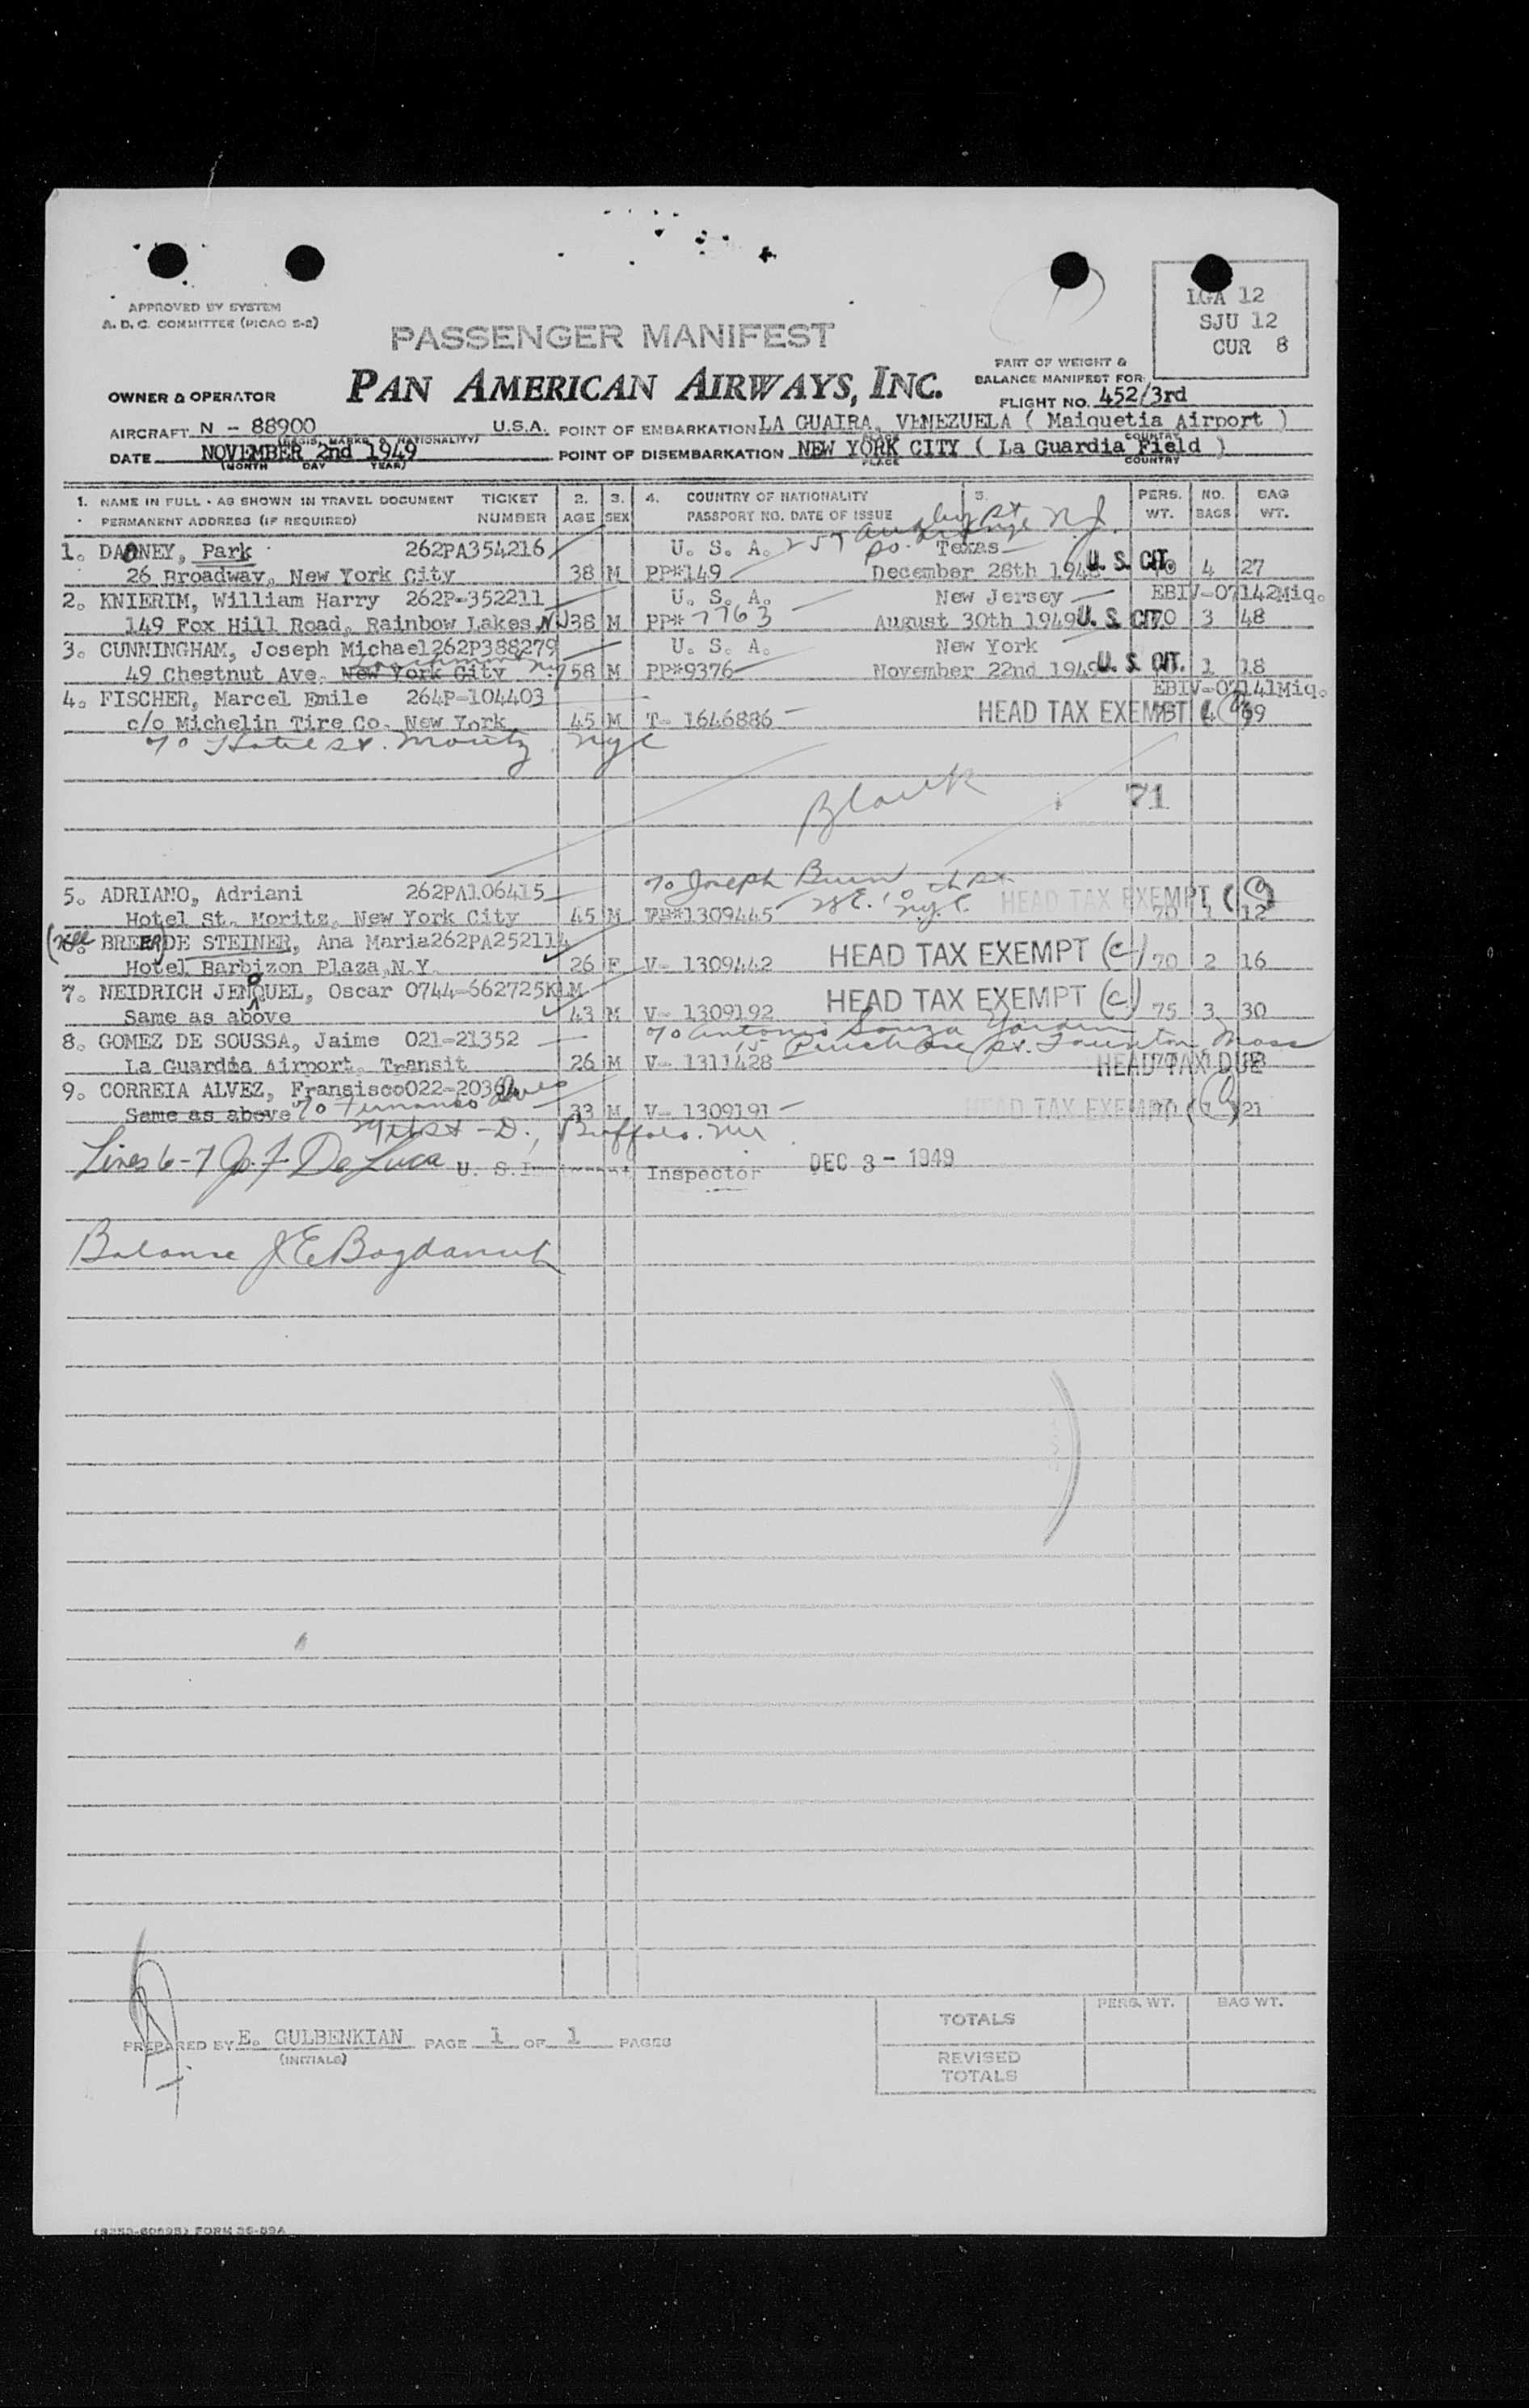 APPROVED BY SYSTEM
A. D. C. COMMITTEE (PICAO S-2)
LGA 12
SJU 12
CUR 8
PASSENGER MANIFEST
PART OF WEIGHT &
BALANCE MANIFEST FOR
OWNER & OPERATOR PAN AMERICAN AIRWAYS, INC. FLIGHT NO. 452/3rd
AIRCRAFT N - 88900 U.S.A. POINT OF EMBARKATION LA GUAIRA, VENEZUELA ( Maiquetia Airport )
(REGIS. MARKS & NATIONALITY) PLACE COUNTRY
DATE NOVEMBER 2nd 1949 POINT OF DISEMBARKATION NEW YORK CITY ( La Guardia Field )
(MONTH DAY YEAR) PLACE COUNTRY
1. NAME IN FULL - AS SHOWN IN TRAVEL DOCUMENT TICKET 2. 3. 4. COUNTRY OF NATIONALITY 5. PERS. NO. BAG
PERMANENT ADDRESS (IF REQUIRED) NUMBER AGE SEX PASSPORT NO. DATE OF ISSUE WT. BAGS WT.
257 St N.J.
1. DABNEY, Park 262PA354216 U. S. A. Texas
26 Broadway, New York City 38 M PP*149 December 28th 1948 U. S. CIT. 4 27
2. KNIERIM, William Harry 262P-352211 U. S. A. New Jersey EBIV-07142Miq.
149 Fox Hill Road, Rainbow Lakes NJ 38 M PP* 7763 August 30th 1949 U. S. CIT. 70 3 48
3. CUNNINGHAM, Joseph Michael 262P388279 U. S. A. New York
49 Chestnut Ave. New York City 58 M PP*9376 November 22nd 1949 U. S. CIT. 1 18
4. FISCHER, Marcel Emile 264P-104403 EBIV-07141Miq.
c/o Michelin Tire Co. New York 45 M T- 1646886 HEAD TAX EXEMPT
c/o Hotel St. Moritz nyc
Blank 71
c/o Joseph
5. ADRIANO, Adriani 262PA106415 N.Y.C.
Hotel St. Moritz, New York City 45 M PP*1309445 HEAD TAX EXEMPT (C) 70 1 12
6. BREER DE STEINER, Ana Maria 262PA252114 (nee
Hotel Barbizon Plaza, N.Y. 26 F V- 1309442 HEAD TAX EXEMPT (C) 70 2 16
7. NEIDRICH JENQUEL, Oscar 0744-662725KLM
Same as above 43 M V- 1309192 HEAD TAX EXEMPT (C) 75 3 30
c/o Antonio Souza
8. GOMEZ DE SOUSSA, Jaime 021-21352 15 Purchase St. Taunton Mass
La Guardia Airport, Transit 26 M V- 1311428 HEAD TAX DUE
9. CORREIA ALVEZ, Fransisco 022-2036
Same as above c/o Fernando Alves 33 M V- 1309191 HEAD TAX EXEMPT 21
Buffalo
Lines 6-7 J. F. De Luca U. S. Inspector DEC 3 - 1949
Balance
PREPARED BY E. GULBENKIAN PAGE 1 OF 1 PAGES
(INITIALS)
PERS. WT. BAG WT.
TOTALS
REVISED
TOTALS